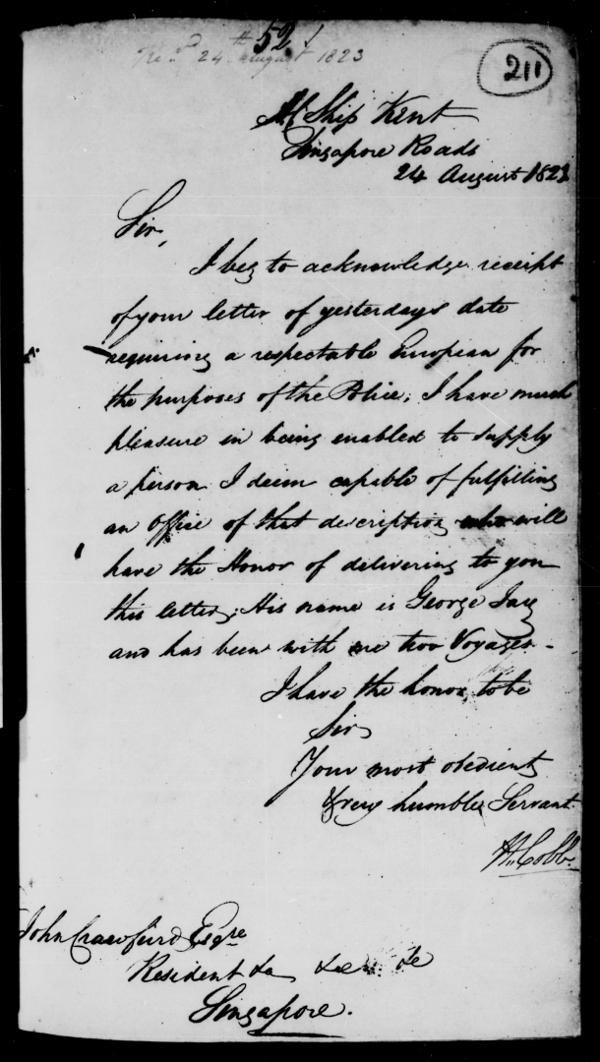 52
Rec.d 24th August 1823
211
H.C. Ship Kent
Singapore Roads
24 August 1823
Sir,
I beg to acknowledge receipt
of your letter of yesterdays date
requiring a respectable European for
the purposes of the Police; I have much
pleasure in being enabled to supply
a person I deem capable of fulfilling
an Office of that description who will
have the Honor of delivering to you
this letter; His name is George
and has been with me two Voyages.-
I have the honor, to be
Sir
Your most obedient
& very humble Servant
Hy. Cobb.
John Crawfurd Esqre
Resident &a &c &c
Singapore.